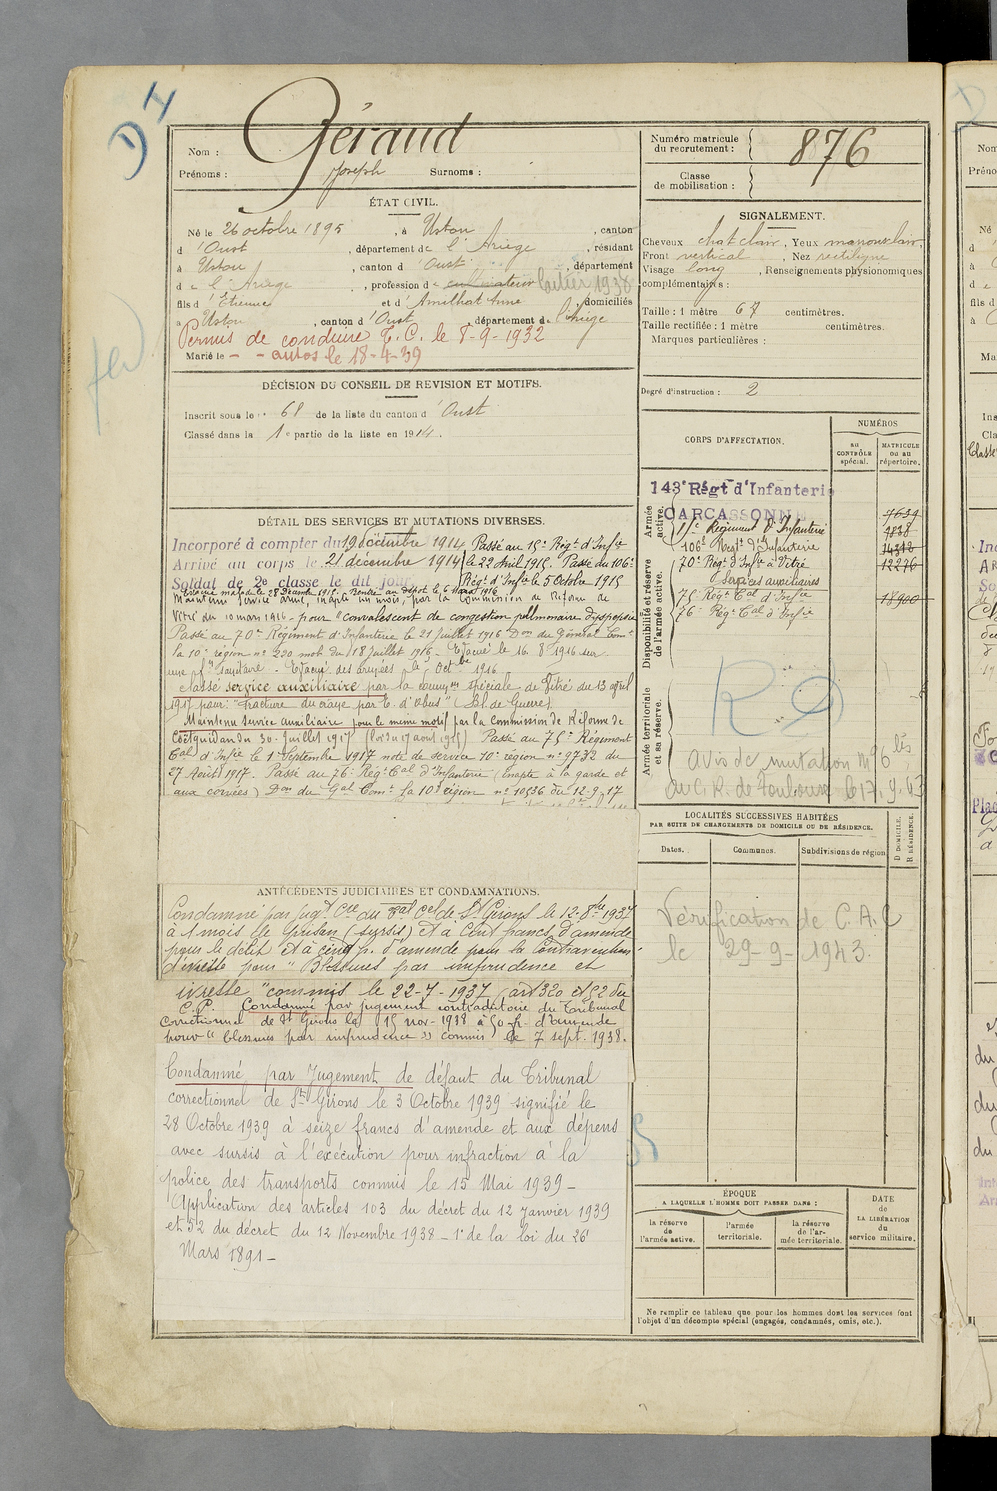 D 4
Géraud
Nom :
Prénoms : Joseph Surnoms :
Numéro matricule du recrutement : 876
Classe de mobilisation :
ÉTAT CIVIL.
Né le 26 octobre 1895, à Ustou, canton
d'Oust, département de l'Ariège, résidant
à Ustou, canton d'Oust, département
de l'Ariège, profession de cultivateur laitier 1938
fils d'Etienne et d'Amilhat Anne domiciliés
à Ustou, canton d'Oust, département de l'Ariège
Permis de conduire T.C. le 8-9-1932
Marié le - - autos le 18-4-39
DÉCISION DU CONSEIL DE REVISION ET MOTIFS.
Inscrit sous le n° 68 de la liste du canton d'Oust
Classé dans la 1e partie de la liste en 1914.
DÉTAIL DES SERVICES ET MUTATIONS DIVERSES.
Incorporé à compter du 19 décembre 1914 Passé au 15e Régt d'Infie
Arrivé au corps le 21 décembre 1914 le 22 Avril 1915. Passé au 106e
Soldat de 2e classe le dit jour Régt d'Infie le 5 Octobre 1915
Evacué malade le 28 Décembre 1915. Rentré au dépôt le 6 Mars 1916
Maintenu service armé, inapte un mois, par la Commission de Réforme de
Vitré du 10 mars 1916 - pour "convalescent de congestion pulmonaire dyspepsie
Passé au 70e Régiment d'Infanterie le 21 Juillet 1916 Don du Général Comt
la 10e région n° 220 mob. du 18 Juillet 1916 - Evacué le 16 8 1916 sur
une fon sanitaire. - Evacué des armées le 5 Octbre 1916
Classé service auxiliaire par la common spéciale de Vitré du 13 avril
1917 pour: "Fracture du crâne par E. d'obus" (Bl. de Guerre)
Maintenu service auxiliaire pour le même motif par la Commission de Réforme de
Coëtquidan du 30 Juillet 1917 (loi du 17 août 1915) Passé au 75e Régiment
Cal d'Infie le 1er Septembre 1917 note de service 10e région n° 9732 du
27 Août 1917. Passé au 76e Régt Cal d'Infanterie (Inapte à la garde et
aux corvées) Don du Gal Comt la 10e région n° 10536 du 12-9-17
ANTÉCÉDENTS JUDICIAIRES ET CONDAMNATIONS.
Condamné par Jugt Cre du Bal Cel de St Girons le 12-8bre 1937
à 1 mois de prison (sursis) et à cent francs d'amende
pour le délit et à cinq f. d'amende pour la contravention
d'ivresse pour "Blessures par imprudence et
ivresse" commis le 22-7-1937 (art 320 et 52 du
C.P. Condamné par jugement contradictoire du Tribunal
Correctionnel de St Girons le 15 nov-1938 à 50 fr. d'amende
pour "blessures par imprudence" commis le 7 sept. 1938.
Condamné par Jugement de défaut du Tribunal
correctionnel de St Girons le 3 Octobre 1939 signifié le
28 Octobre 1939 à seize francs d'amende et aux dépens
avec sursis à l'exécution pour infraction à la
police des transports commis le 15 Mai 1939 -
Application des articles 103 du décret du 12 Janvier 1939
et 52 du décret du 12 Novembre 1938 - 1er de la loi du 26
Mars 1891 -
SIGNALEMENT.
Cheveux chat clair, Yeux marron clair,
Front vertical, Nez rectiligne
Visage long, Renseignements physionomiques
complémentaires :
Taille : 1 mètre 67 centimètres.
Taille rectifiée : 1 mètre centimètres.
Marques particulières :
Degré d'instruction : 2
CORPS D'AFFECTATION.
NUMÉROS
au CONTRÔLE spécial.
MATRICULE ou au répertoire.
Armée active.
143e Régt d'Infanterie
CARCASSONNE 7639
15e Régiment d'Infanterie 9838
106e Régt d'Infanterie 14312
Disponibilité et réserve de l'armée active.
70e Régt d'Infie à Vitré 12226
Services auxiliaires
75e Régt Cal d'Infie 18900
76e Régt Cal d'Infie
Armée territoriale et sa réserve.
avis de mutation n° 6 bis
du C. R. de Toulouse le 17.9.43
LOCALITÉS SUCCESSIVES HABITÉES
PAR SUITE DE CHANGEMENTS DE DOMICILE OU DE RÉSIDENCE.
Dates. Communes. Subdivisions de région.
D DOMICILE.
R RÉSIDENCE.
Vérification de C.A.C
le 29-9-1943.
ÉPOQUE
A LAQUELLE L'HOMME DOIT PASSER DANS :
la réserve de l'armée active.
l'armée territoriale.
la réserve de l'armée territoriale.
DATE de LA LIBÉRATION du service militaire.
Ne remplir ce tableau que pour les hommes dont les services font
l'objet d'un décompte spécial (engagés, condamnés, omis, etc.).